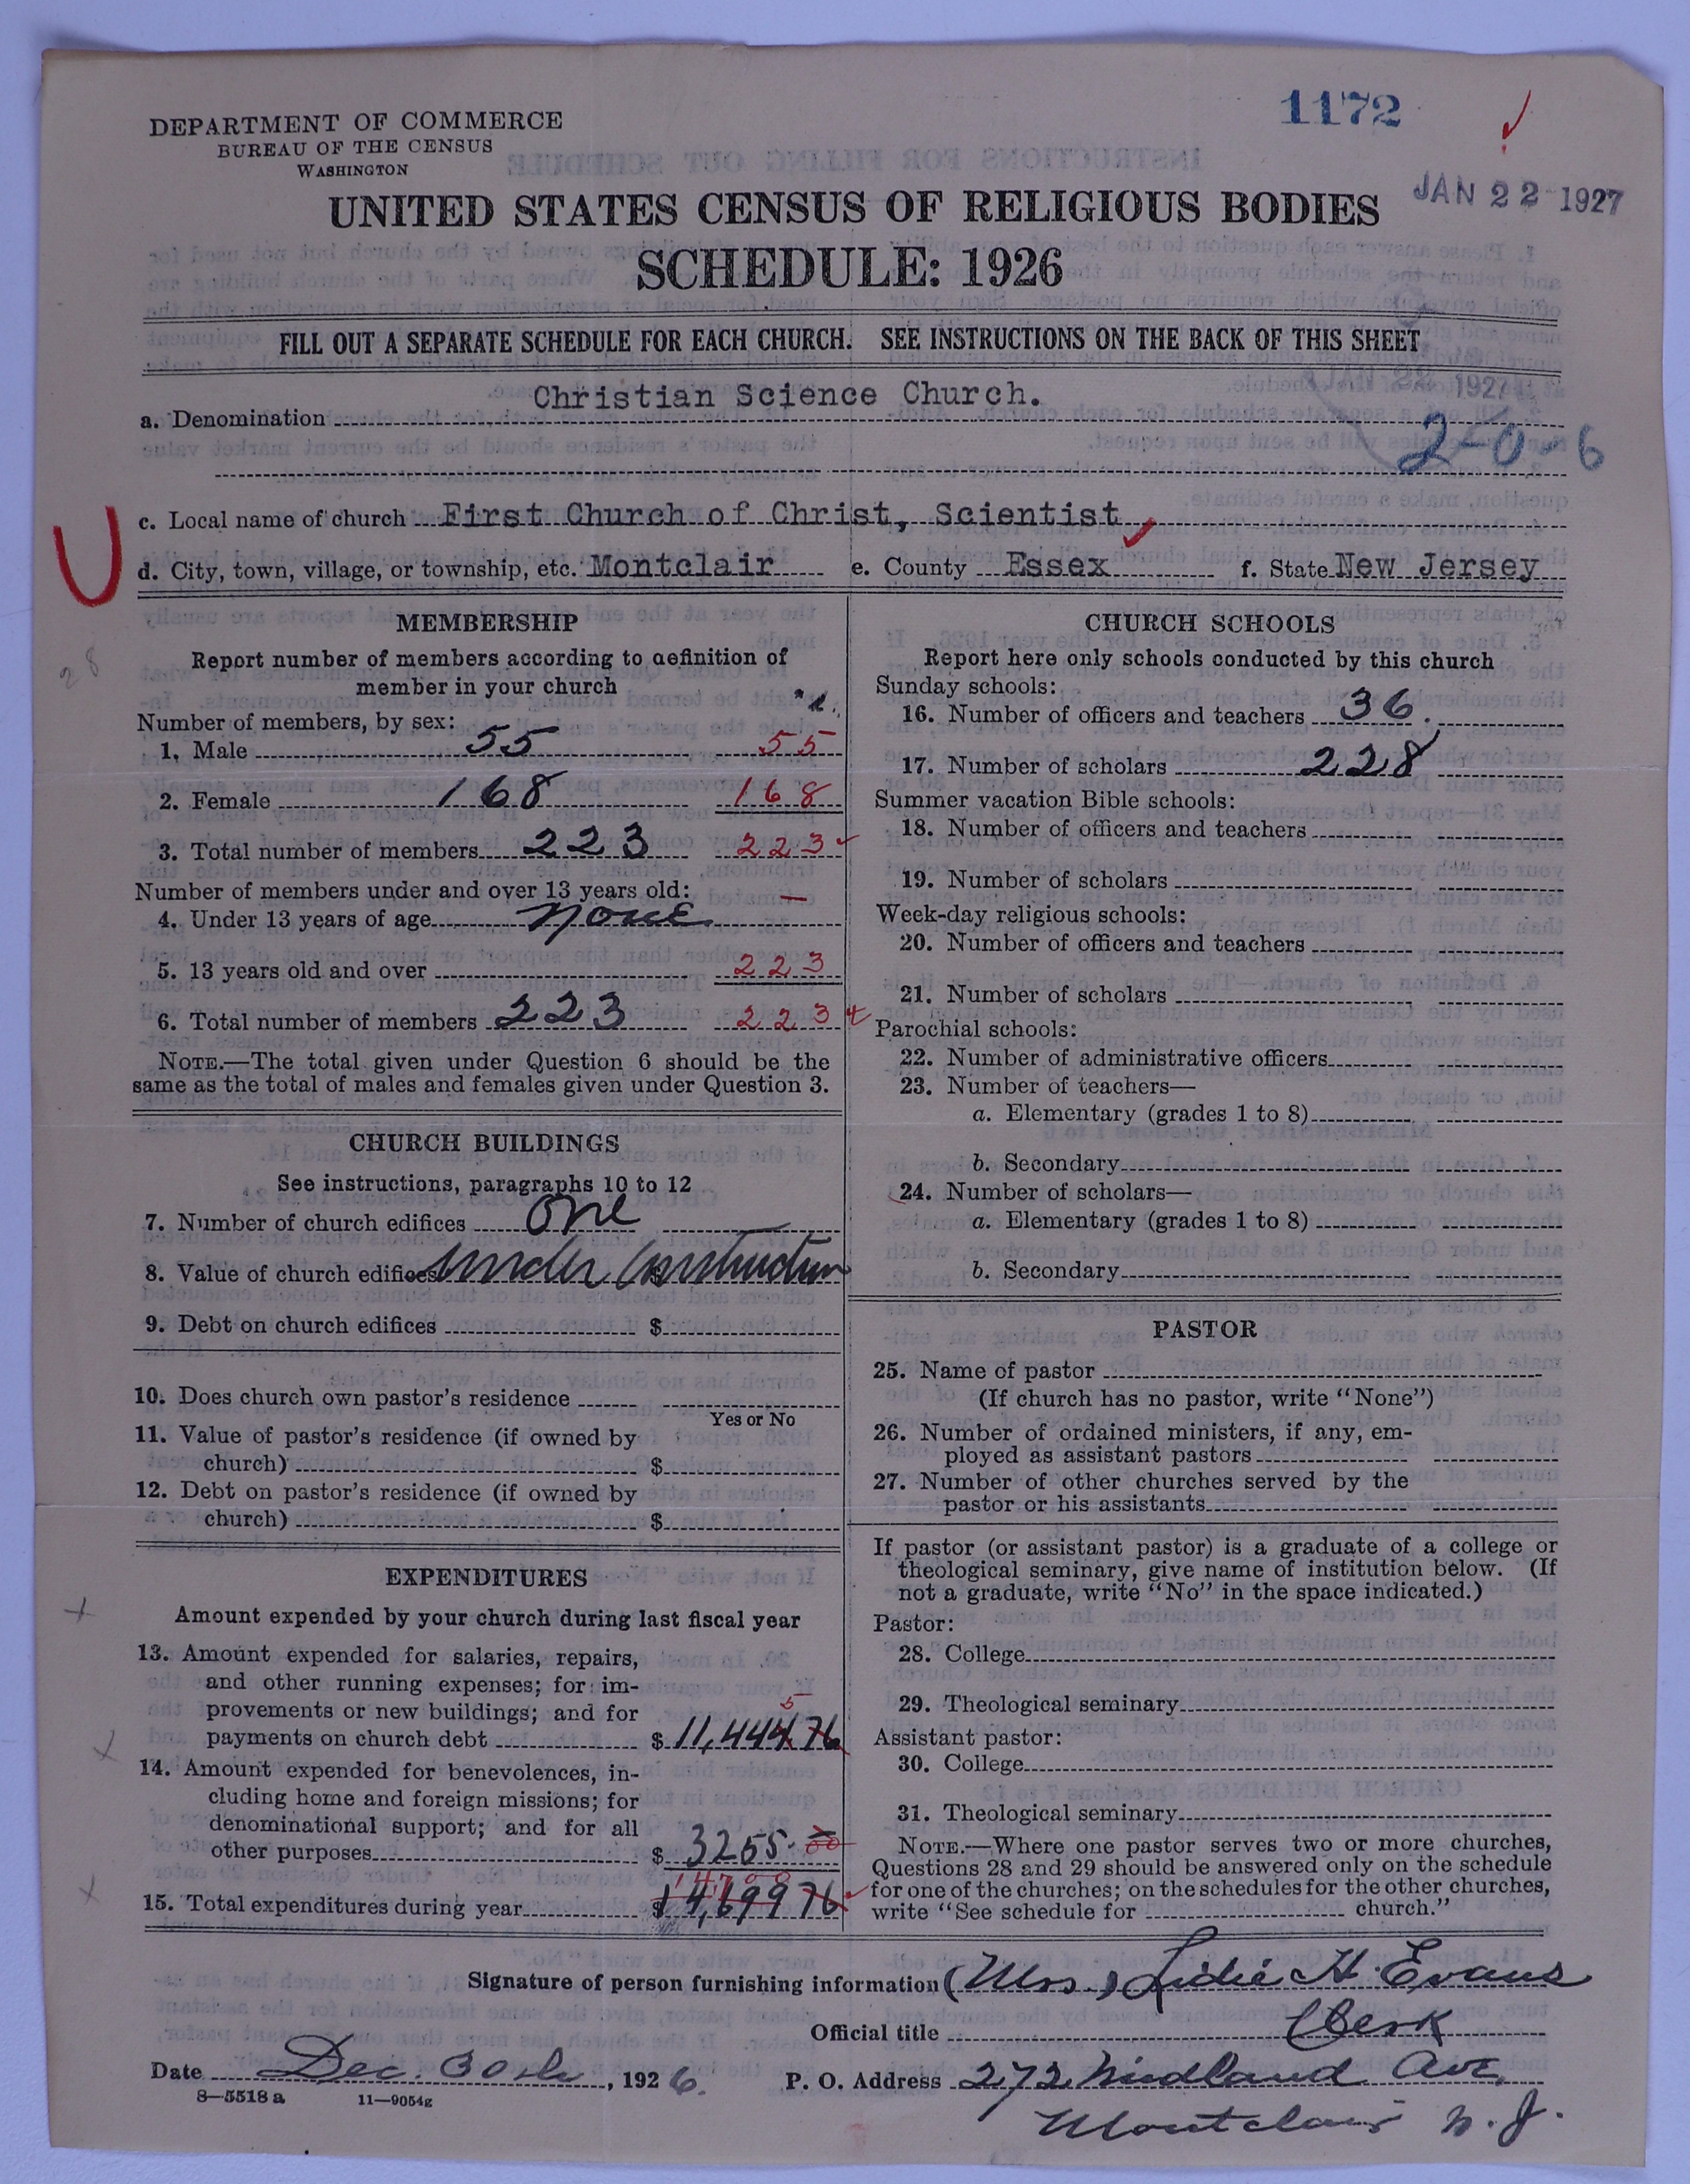 1172
DEPARTMENT OF COMMERCE
BUREAU OF THE CENSUS
WASHINGTON
JAN 22 1927
UNITED STATES CENSUS OF RELIGIOUS BODIES
SCHEDULE: 1926
FILL OUT A SEPARATE SCHEDULE FOR EACH CHURCH. SEE INSTRUCTIONS ON THE BACK OF THIS SHEET
JAN 22 1927
a. Denomination Christian Science Church.
2-0-6
c. Local name of church First Church of Christ, Scientist
d. City, town, village, or township, etc. Montclair e. County Essex f. State New Jersey
MEMBERSHIP
28
Report number of members according to definition of
member in your church
Number of members, by sex:
1. Male 55 55
2. Female 168 168
3. Total number of members 223 223
Number of members under and over 13 years old:
4. Under 13 years of age none —
5. 13 years old and over 223
6. Total number of members 223 223
NOTE.—The total given under Question 6 should be the
same as the total of males and females given under Question 3.
CHURCH BUILDINGS
See instructions, paragraphs 10 to 12
7. Number of church edifices One
8. Value of church edifices $ Under Construction
9. Debt on church edifices $
10. Does church own pastor's residence
Yes or No
11. Value of pastor's residence (if owned by
church) $
12. Debt on pastor's residence (if owned by
church) $
EXPENDITURES
Amount expended by your church during last fiscal year
13. Amount expended for salaries, repairs,
and other running expenses; for im-
provements or new buildings; and for
5
payments on church debt $ 11,444 76
14. Amount expended for benevolences, in-
cluding home and foreign missions; for
denominational support; and for all
other purposes $ 3255.00
15. Total expenditures during year $ 14,699 76
CHURCH SCHOOLS
Report here only schools conducted by this church
Sunday schools:
16. Number of officers and teachers 36.
17. Number of scholars 228
Summer vacation Bible schools:
18. Number of officers and teachers
19. Number of scholars
Week-day religious schools:
20. Number of officers and teachers
21. Number of scholars
Parochial schools:
22. Number of administrative officers
23. Number of teachers—
a. Elementary (grades 1 to 8)
b. Secondary
24. Number of scholars—
a. Elementary (grades 1 to 8)
b. Secondary
PASTOR
25. Name of pastor
(If church has no pastor, write "None")
26. Number of ordained ministers, if any, em-
ployed as assistant pastors
27. Number of other churches served by the
pastor or his assistants
If pastor (or assistant pastor) is a graduate of a college or
theological seminary, give name of institution below. (If
not a graduate, write "No" in the space indicated.)
Pastor:
28. College
29. Theological seminary
Assistant pastor:
30. College
31. Theological seminary
NOTE.—Where one pastor serves two or more churches,
Questions 28 and 29 should be answered only on the schedule
for one of the churches; on the schedules for the other churches,
write "See schedule for church."
Signature of person furnishing information (Mrs.) Lidie H. Evans
Official title Clerk
Date Dec. 30th, 1926. P. O. Address 272 Midland Ave,
8—5518 a 11—9054g
Montclair N. J.